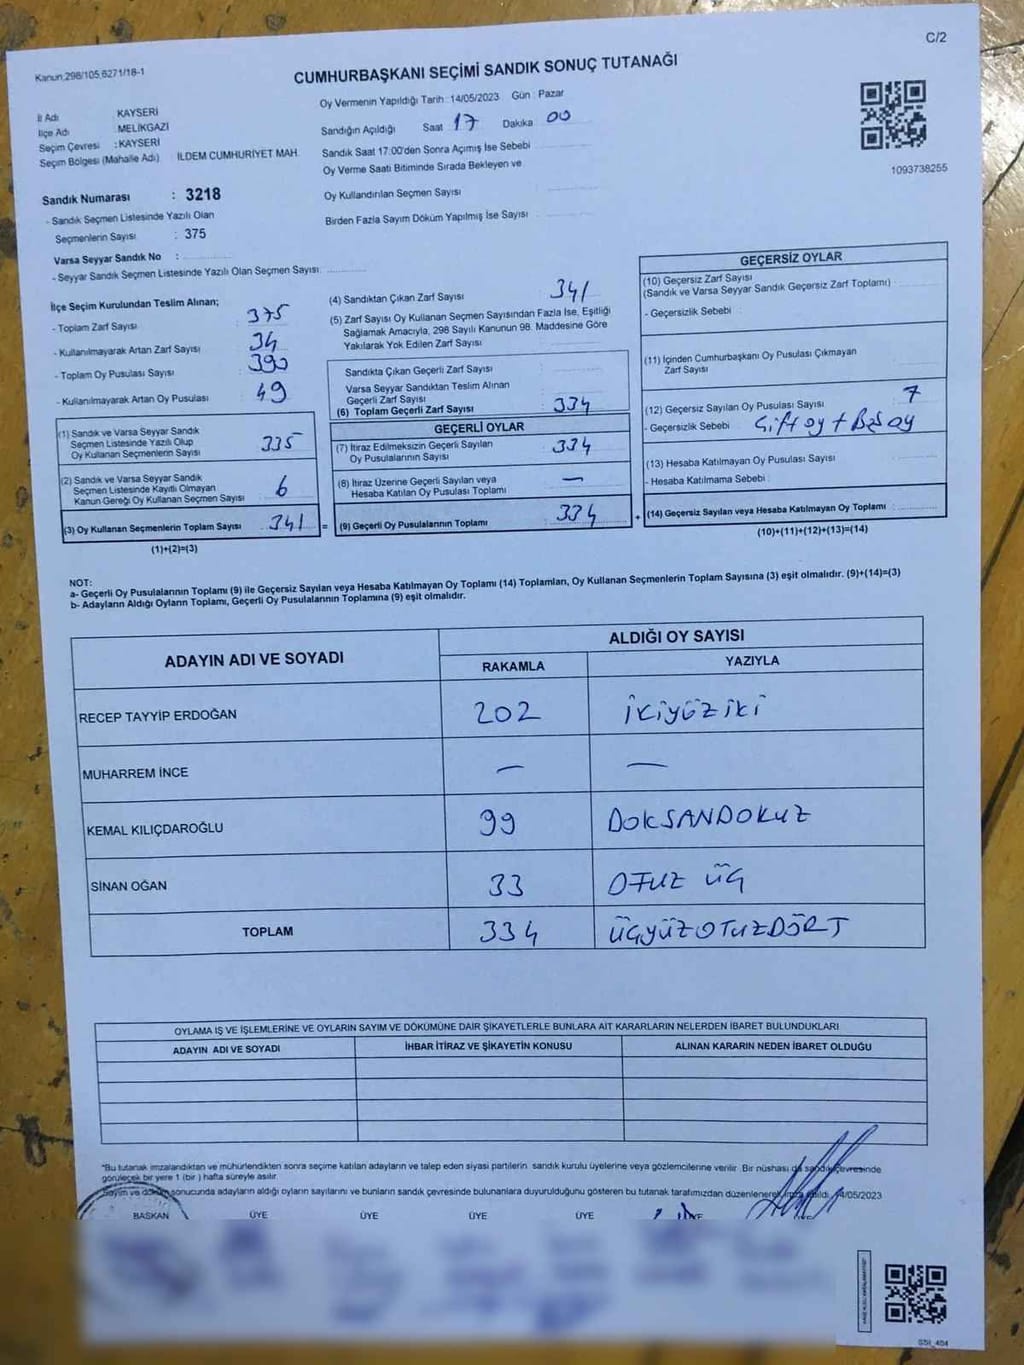 C/2
Kanun 298/105,6271/18-1
CUMHURBAŞKANI SEÇİMİ SANDIK SONUÇ TUTANAĞI
İl Adı KAYSERİ
İlçe Adı :MELİKGAZİ
Seçim Çevresi :KAYSERİ
Seçim Bölgesi (Mahalle Adı) İLDEM CUMHURİYET MAH.
Oy Vermenin Yapıldığı Tarih :14/05/2023 Gün : Pazar
Sandığın Açıldığı Saat 17 Dakika 00
Sandık Saat 17:00'den Sonra Açımış İse Sebebi
Oy Verme Saati Bitiminde Sırada Bekleyen ve
Oy Kullandırılan Seçmen Sayısı
Birden Fazla Sayım Döküm Yapılmış İse Sayısı
1093738255
Sandık Numarası : 3218
- Sandık Seçmen Listesinde Yazılı Olan
Seçmenlerin Sayısı : 375
Varsa Seyyar Sandık No :
- Seyyar Sandık Seçmen Listesinde Yazılı Olan Seçmen Sayısı:
İlçe Seçim Kurulundan Teslim Alınan;
- Toplam Zarf Sayısı 375
- Kullanılmayarak Artan Zarf Sayısı 34
- Toplam Oy Pusulası Sayısı 390
- Kullanılmayarak Artan Oy Pusulası 49
(1) Sandık ve Varsa Seyyar Sandık
Seçmen Listesinde Yazılı Olup
Oy Kullanan Seçmenlerin Sayısı 335
(2) Sandık ve Varsa Seyyar Sandık
Seçmen Listesinde Kayıtlı Olmayan
Kanun Gereği Oy Kullanan Seçmen Sayısı 6
(3) Oy Kullanan Seçmenlerin Toplam Sayısı 341 =
(1)+(2)=(3)
(4) Sandıktan Çıkan Zarf Sayısı 341
(5) Zarf Sayısı Oy Kullanan Seçmen Sayısından Fazla İse, Eşitliği
Sağlamak Amacıyla; 298 Sayılı Kanunun 98. Maddesine Göre
Yakılarak Yok Edilen Zarf Sayısı
Sandıkta Çıkan Geçerli Zarf Sayısı
Varsa Seyyar Sandıktan Teslim Alınan
Geçerli Zarf Sayısı
(6) Toplam Geçerli Zarf Sayısı : 334
GEÇERLİ OYLAR
(7) İtiraz Edilmeksizin Geçerli Sayılan
Oy Pusulalarının Sayısı 334
(8) İtiraz Üzerine Geçerli Sayılan veya
Hesaba Katılan Oy Pusulası Toplamı —
(9) Geçerli Oy Pusulalarının Toplamı 334 +
GEÇERSİZ OYLAR
(10) Geçersiz Zarf Sayısı
(Sandık ve Varsa Seyyar Sandık Geçersiz Zarf Toplamı)
- Geçersizlik Sebebi
(11) İçinden Cumhurbaşkanı Oy Pusulası Çıkmayan
Zarf Sayısı
(12) Geçersiz Sayılan Oy Pusulası Sayısı 7
- Geçersizlik Sebebi Çift oy +
(13) Hesaba Katılmayan Oy Pusulası Sayısı
- Hesaba Katılmama Sebebi
(14) Geçersiz Sayılan veya Hesaba Katılmayan Oy Toplamı
(10)+(11)+(12)+(13)=(14)
NOT:
a- Geçerli Oy Pusulalarının Toplamı (9) ile Geçersiz Sayılan veya Hesaba Katılmayan Oy Toplamı (14) Toplamları, Oy Kullanan Seçmenlerin Toplam Sayısına (3) eşit olmalıdır. (9)+(14)=(3)
b- Adayların Aldığı Oyların Toplamı, Geçerli Oy Pusulalarının Toplamına (9) eşit olmalıdır.
ADAYIN ADI VE SOYADI ALDIĞI OY SAYISI
RAKAMLA YAZIYLA
RECEP TAYYİP ERDOĞAN 202 İKİYÜZİKİ
MUHARREM İNCE — —
KEMAL KILIÇDAROĞLU 99 DOKSANDOKUZ
SİNAN OĞAN 33 OTUZ ÜÇ
TOPLAM 334 ÜÇYÜZOTUZDÖRT
OYLAMA İŞ VE İŞLEMLERİNE VE OYLARIN SAYIM VE DÖKÜMÜNE DAİR ŞİKAYETLERLE BUNLARA AİT KARARLARIN NELERDEN İBARET BULUNDUKLARI
ADAYIN ADI VE SOYADI İHBAR İTİRAZ VE ŞİKAYETİN KONUSU ALINAN KARARIN NEDEN İBARET OLDUĞU
*Bu tutanak imzalandıktan ve mühürlendikten sonra seçime katılan adayların ve talep eden siyasi partilerin sandık kurulu üyelerine veya gözlemcilerine verilir. Bir nüshası da sandık çevresinde
görülecek bir yere 1 (bir) hafta süreyle asılır.
Sayım ve döküm sonucunda adayların aldığı oyların sayılarını ve bunların sandık çevresinde bulunanlara duyurulduğunu gösteren bu tutanak tarafımızdan düzenlenerek imza edildi. 14/05/2023
BAŞKAN ÜYE ÜYE ÜYE ÜYE